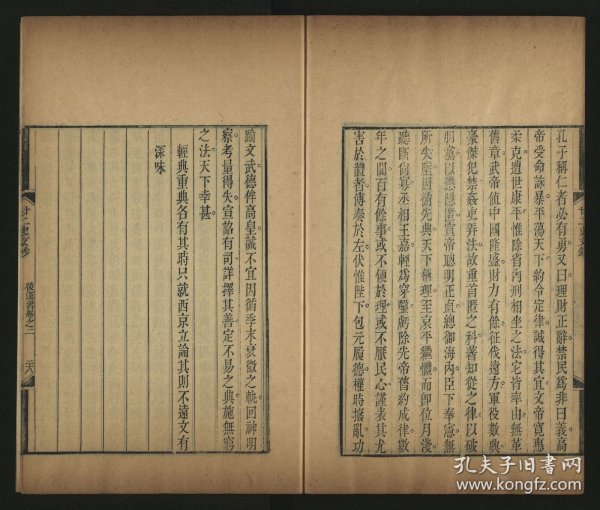 孔子稱仁者必有勇又曰理財正辭禁民爲非曰義高
帝受命誅暴平蕩天下約令定律誠得其宜文帝寬惠
柔克遭世康平惟除省肉刑相坐之法它皆率由無革
舊章武帝值中國隆盛財力有餘征伐遠方軍役數興
豪傑犯禁姦吏弄法故重首匿之科著知從之律以破
朋黨以懲隱匿宣帝聰明正直總御海內臣下奉憲無
所失墜因循先典天下稱理至哀平繼體而即位日淺
聽斷尚寡丞相王嘉輕爲穿鑿虧除先帝舊約成律數
年之間百有餘事或不便於理或不厭民心謹表其尤
害於體者傅奏於左伏惟陛下包元履德權時撥亂功
踰文武德侔高皇誠不宜因循季末衰微之軌回神明
察考量得失宣詔有司詳擇其善定不易之典施無窮
之法天下幸甚
輕典重典各有其時只就西京立論其則不遠文有
深味
廿一史文鈔
後漢書卷之三
二六
廿一史文鈔
孔夫子旧书网
www.kongfz.com